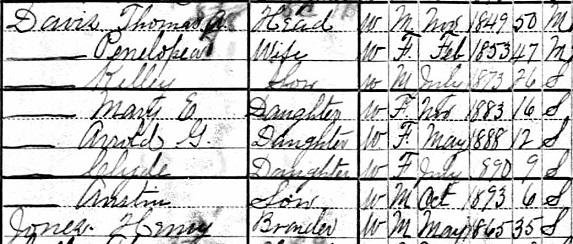 Davis Thomas A. Head W M Nov 1849 50 M
Penelopea Wife W F. Feb 1853 47 M
Kelley Son W M July 1873 26 S
Mary E Daughter W F Nov 1883 16 S
Arrold G. Daughter W F May 1888 12 S
Clyde Daughter W F July 890 9 S
Austin Son W M Oct 1893 6 S
Jones Henry Boarder W M May 1865 35 S